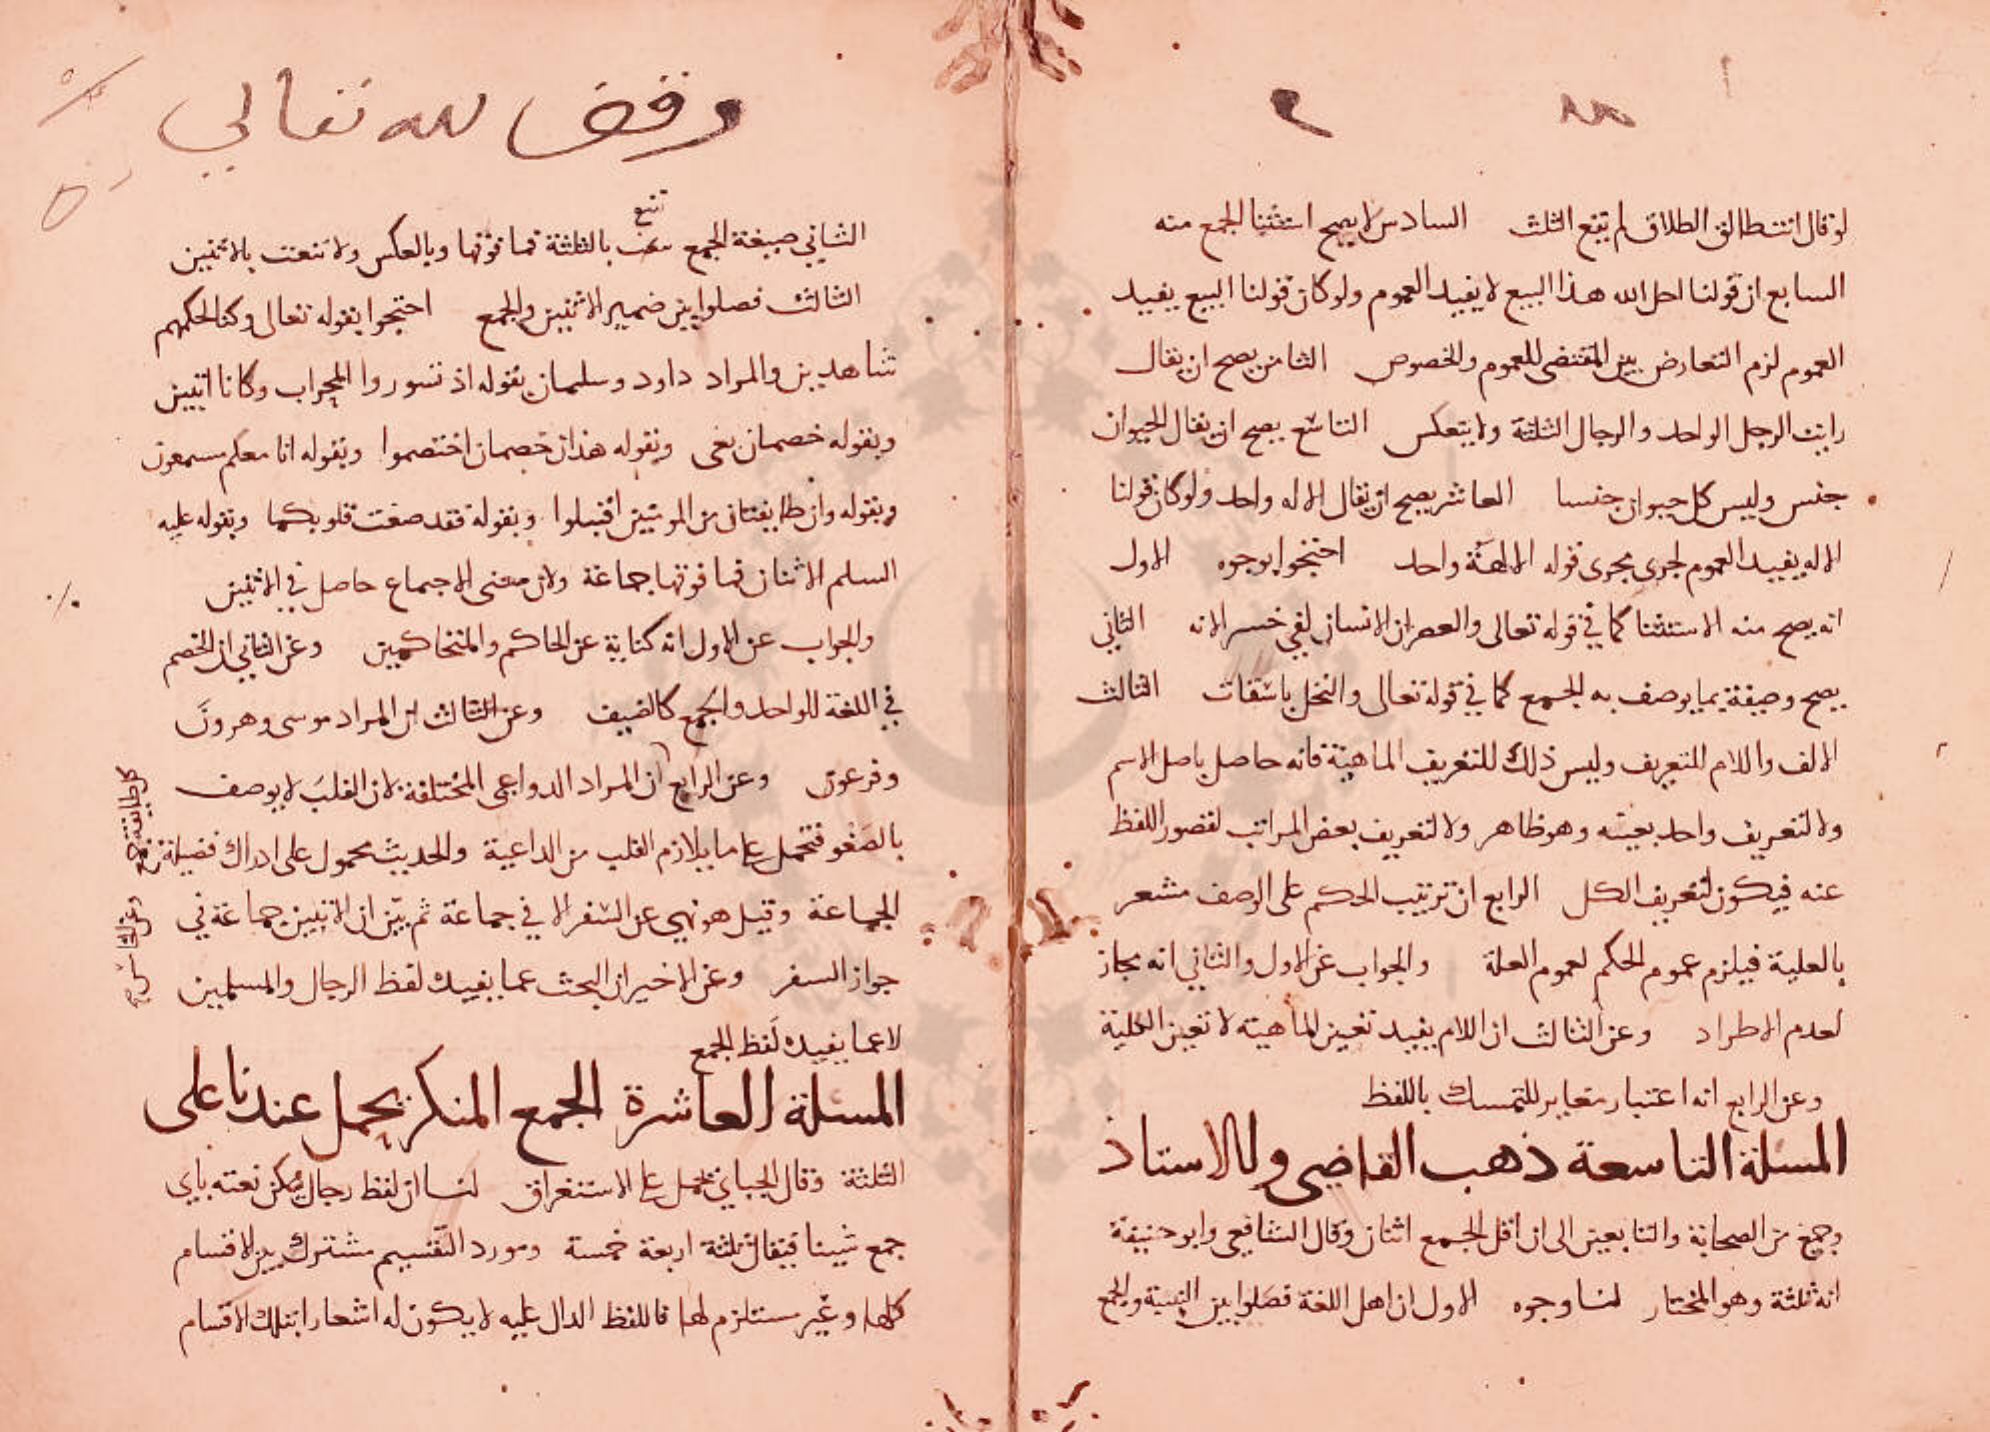 لو قال انت طالق الطلاق لم تقع الثلث السادس لا يصح استثنا الجمع منه
السابع ان قولنا احل الله هذا البيع لا يفيد العموم ولو كان قولنا البيع يفيد
العموم لزم التعارض بين المقتضى للعموم والخصوص الثامن يصح ان يقال
رايت الرجل الواحد والرجال الثلثة ولا ينعكس التاسع يصح ان يقال الحيوان
جنس وليس كل حيوان جنسا العاشر يصح ان يقال الاله واحد ولو كان قولنا
الاله يفيد العموم لجرى مجرى قوله الالهة واحد احتجوا بوجوه الاول
انه يصح منه الاستثنا كما في قوله تعالى والعصر ان الانسان لفي خسر الا انه الثاني
يصح وصفه بما يوصف به الجمع كما في قوله تعالى والنخل باسقات الثالث
الالف واللام للتعريف وليس ذلك للتعريف الماهية فانه حاصل باصل الاسم
ولا لتعريف واحد بعينه وهو ظاهر ولا لتعريف بعض المراتب لقصور اللفظ
عنه فيكون لتعريف الكل الرابع ان ترتيب الحكم على الوصف مشعر
بالعلية فيلزم عموم الحكم لعموم العلة والجواب عن الاول والثاني انه مجاز
لعدم الاطراد وعن الثالث ان اللام يفيد تعيين الماهية لا تعين الكلية
وعن الرابع انه اعتبار مغاير للتمسك باللفظ
المسلة التاسعة ذهب القاضي والاستاذ
وجمع من الصحابة والتابعين الى ان اقل الجمع اثنان وقال الشافعي وابو حنيفة
انه ثلثة وهو المختار لنا وجوه الاول ان اهل اللغة فصلوا بين التثنية والجمع
وقف لله تعالى
الثاني صيغة الجمع تنعت بالثلثة فما فوقها وبالعكس ولا تنعت بالاثنين
الثالث فصلوا بين ضمير الاثنين والجمع احتجوا بقوله تعالى وكنا لحكمهم
شاهدين والمراد داود وسليمان بقوله اذ تسوروا المحراب وكانا اثنين
وبقوله خصمان بغى وبقوله هذان خصمان اختصموا وبقوله انا معكم مستمعون
وبقوله وان طايفتان من المومنين اقتتلوا وبقوله فقد صغت قلوبكما وبقوله عليه
السلم الاثنان فما فوقها جماعة ولان معنى الاجتماع حاصل في الاثنين
والجواب عن الاول انه كناية عن الحاكم والمتحاكمين وعن الثاني ان الخصم
في اللغة للواحد والجمع كالضيف وعن الثالث ان المراد موسى وهرون
وفرعون وعن الرابع ان المراد الدواعي المختلفة لان القلب لا يوصف
بالصغو فتحمل على ما يلازم القلب من الداعية والحديث محمول على ادراك فضيلة
الجماعة وقيل هو نهي عن السفر الا في جماعة ثم بين ان الاثنين جماعة في
جواز السفر وعن الاخير ان البحث عما يفيده لفظ الرجال والمسلمين
لا عما يفيده لفظ الجمع
المسلة العاشرة الجمع المنكر يحمل عندنا على
الثلثة وقال الجباي يحمل على الاستغراق لنا ان لفظ رجال يمكن نعته باي
جمع شينا فيقال ثلثة اربعة خمسة ومورد التقسيم مشترك بين الاقسام
كلها وغير مستلزم لها فاللفظ الدال عليه لا يكون له اشعار بتلك الاقسام